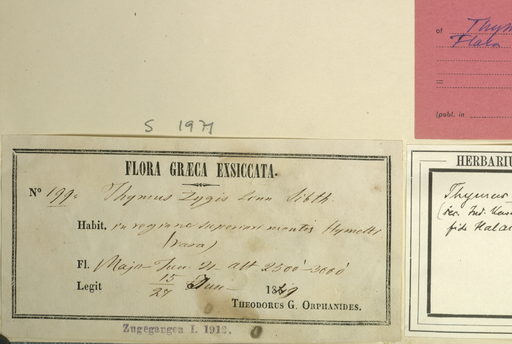 of Thym
S 1971
(publ. in
FLORA GRÆCA EXSICCATA.
Nº 199. Thymus Zygis Linn Sibth.
Habit. in regione superiori montis Hymetti
(rara)
Fl. Majo - Jun. 4 alt 2500'-3000'
Legit 15/27 Jun 1849
THEODORUS G. ORPHANIDES.
Zugegangen I. 1912.
HERBARIU
Thymus
fide Halac